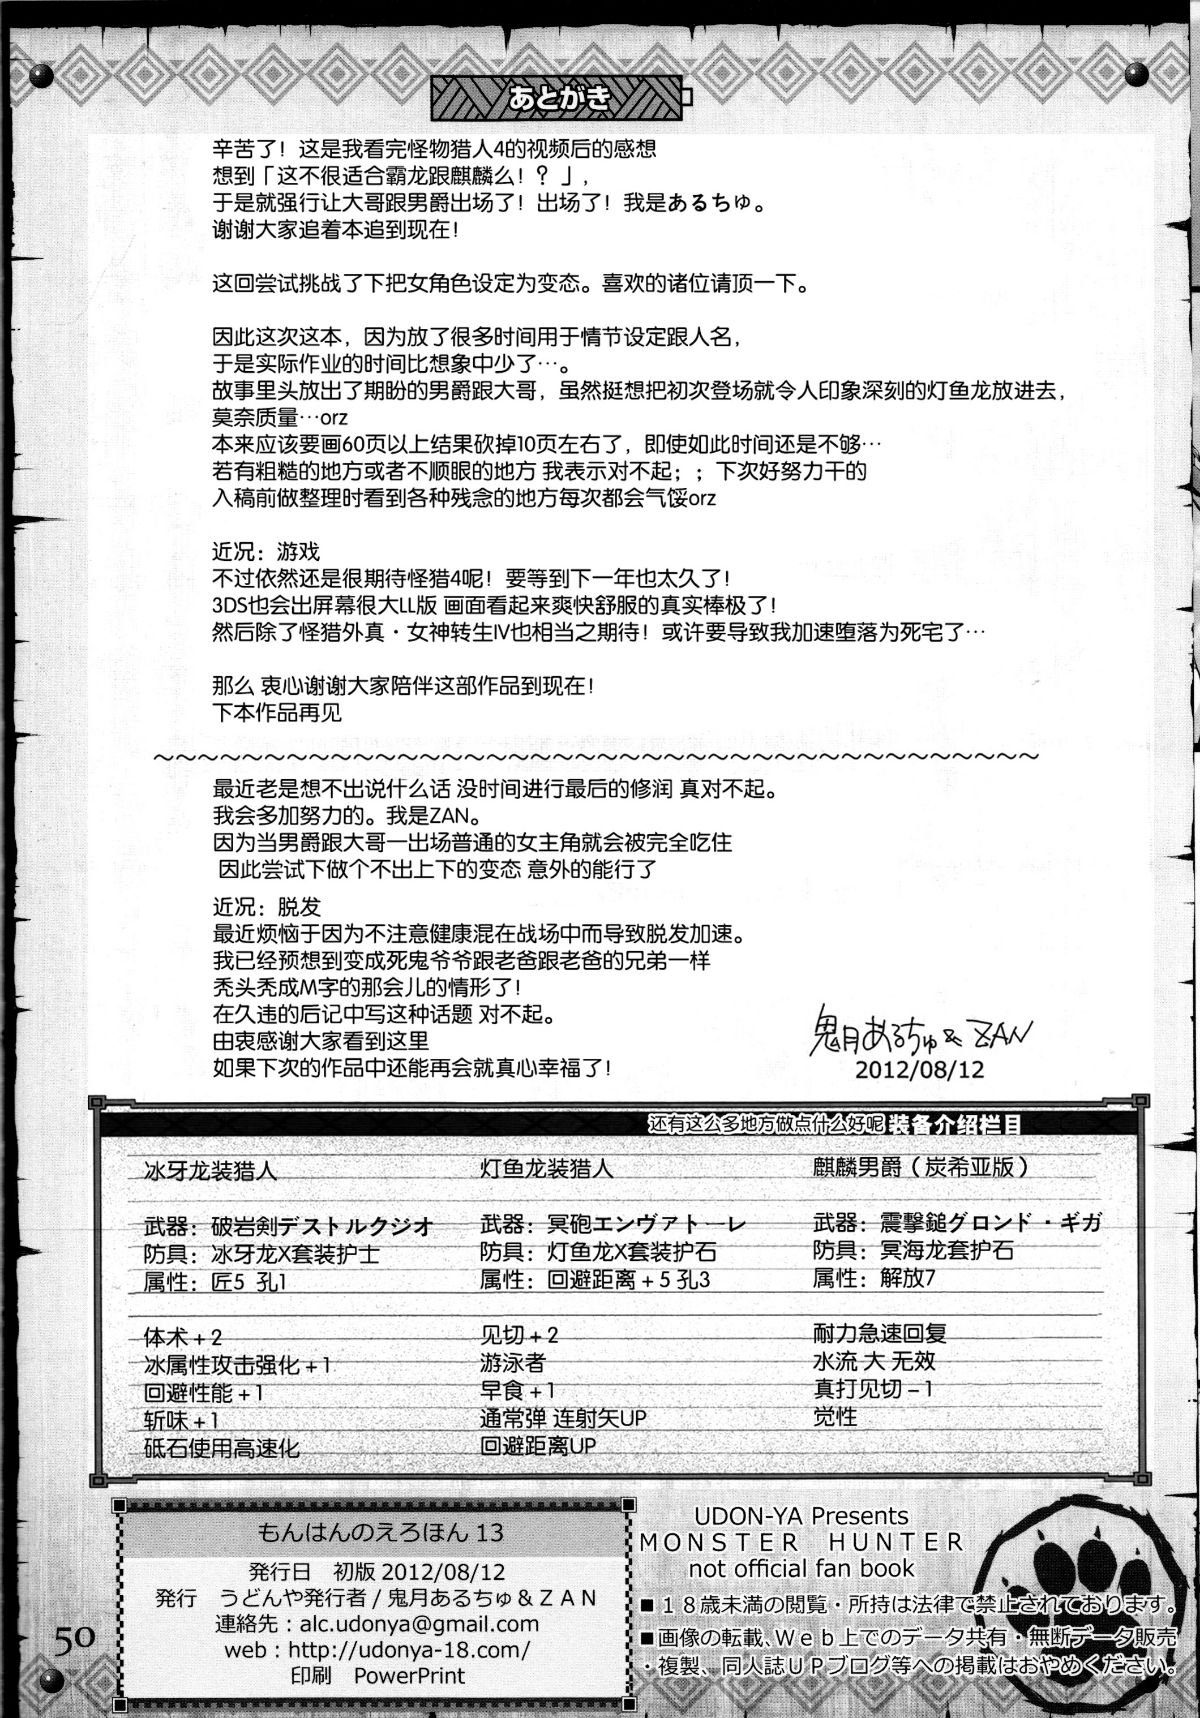 あとがき
辛苦了！这是我看完怪物猎人4的视频后的感想
想到「这不很适合霸龙跟麒麟么！？」，
于是就强行让大哥跟男爵出场了！出场了！我是あるちゅ。
谢谢大家追着本追到现在！
这回尝试挑战了下把女角色设定为变态。喜欢的诸位请顶一下。
因此这次这本，因为放了很多时间用于情节设定跟人名，
于是实际作业的时间比想象中少了…。
故事里头放出了期盼的男爵跟大哥，虽然挺想把初次登场就令人印象深刻的灯鱼龙放进去，
莫奈质量…orz
本来应该要画60页以上结果砍掉10页左右了，即使如此时间还是不够…
若有粗糙的地方或者不顺眼的地方 我表示对不起；；下次好努力干的
入稿前做整理时看到各种残念的地方每次都会气馁orz
近况：游戏
不过依然还是很期待怪猎4呢！要等到下一年也太久了！
3DS也会出屏幕很大LL版 画面看起来爽快舒服的真实棒极了！
然后除了怪猎外真・女神转生IV也相当之期待！或许要导致我加速堕落为死宅了…
那么 衷心谢谢大家陪伴这部作品到现在！
下本作品再见
～～～～～～～～～～～～～～～～～～～～～～～～～～～～～～～～～～～～～～～～
最近老是想不出说什么话 没时间进行最后的修润 真对不起。
我会多加努力的。我是ZAN。
因为当男爵跟大哥一出场普通的女主角就会被完全吃住
因此尝试下做个不出上下的变态 意外的能行了
近况：脱发
最近烦恼于因为不注意健康混在战场中而导致脱发加速。
我已经预想到变成死鬼爷爷跟老爸跟老爸的兄弟一样
秃头秃成M字的那会儿的情形了！
在久违的后记中写这种话题 对不起。
由衷感谢大家看到这里
如果下次的作品中还能再会就真心幸福了！
鬼月あるちゅ& ZAN
2012/08/12
还有这么多地方做点什么好呢 装备介绍栏目
冰牙龙装猎人
武器：破岩剣デストルクジオ
防具：冰牙龙X套装护士
属性：匠5 孔1
体术+2
冰属性攻击强化+1
回避性能+1
斩味+1
砥石使用高速化
灯鱼龙装猎人
武器：冥砲エンヴァトーレ
防具：灯鱼龙X套装护石
属性：回避距离+5 孔3
见切+2
游泳者
早食+1
通常弹 连射矢UP
回避距离UP
麒麟男爵（炭希亚版）
武器：震撃鎚グロンド・ギガ
防具：冥海龙套护石
属性：解放7
耐力急速回复
水流 大 无效
真打见切-1
觉性
もんはんのえろほん 13
発行日　初版 2012/08/12
発行　うどんや発行者 / 鬼月あるちゅ＆ＺＡＮ
連絡先：alc.udonya@gmail.com
web：http://udonya-18.com/
印刷　PowerPrint
UDON-YA Presents
MONSTER HUNTER
not official fan book
■１８歳未満の閲覧・所持は法律で禁止されております。
■画像の転載、Ｗｅｂ上でのデータ共有・無断データ販売
・複製、同人誌ＵＰブログ等への掲載はおやめください。
50